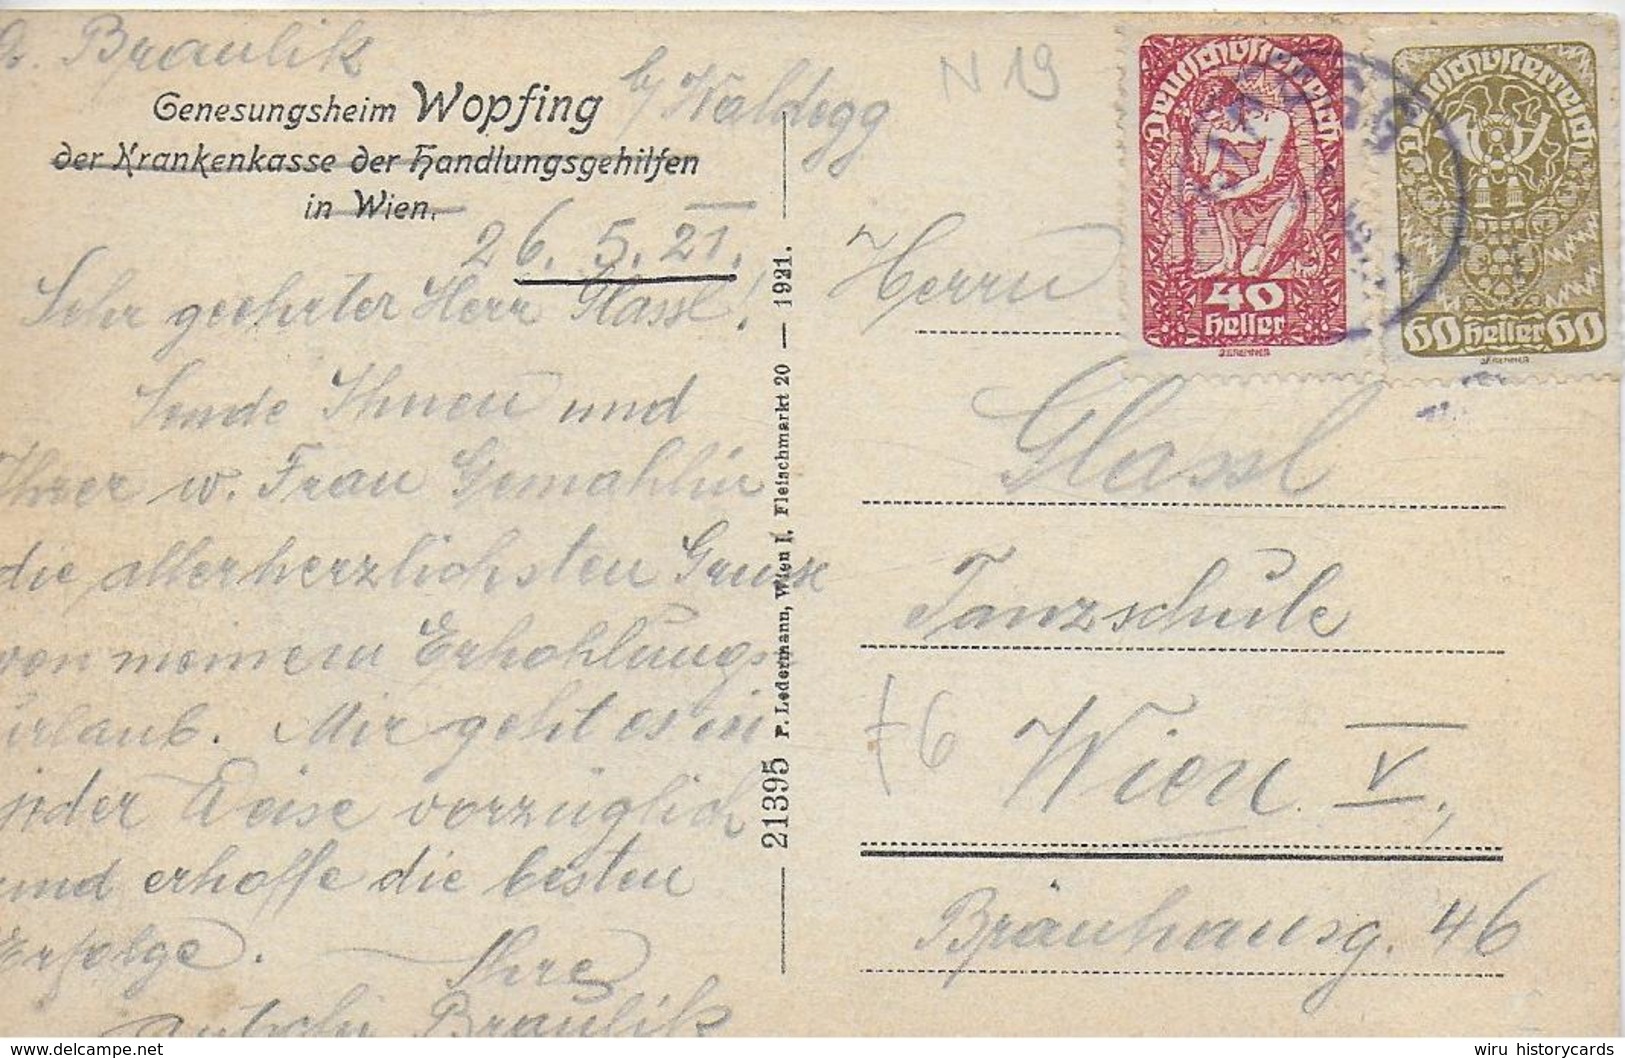 A. Braulik
Genesungsheim Wopfing
b/ Waldegg
der Krankenkasse der Handlungsgehilfen
in Wien.
26. 5. 21.
Sehr geehrter Herr Glassl!
Sende Ihnen und
Ihrer w. Frau Gemahlin
die allerherzlichsten Grüsse
von meinem Erhohlungs-
urlaub. Mir geht es in
jeder Weise vorzüglich
und erhoffe die besten
Erfolge.
Ihre
Braulik
21395 P. Ledermann, Wien I, Fleischmarkt 20 — 1921.
N 19
Deutschösterreich
40
Heller
J.F.RENNER
Deutschösterreich
60 Heller 60
J.F.RENNER
Herrn
Glassl
Tanzschule
Wien V.,
Bräuhausg. 46
wiru historycards
delcampe.net